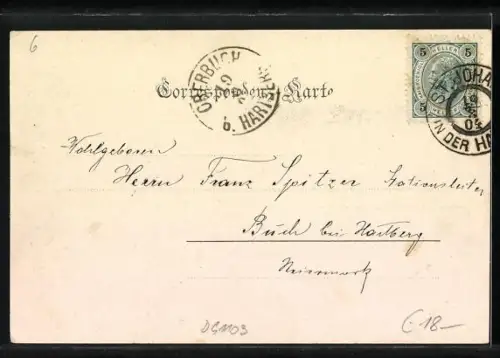 6
Correspondenz-Karte
OBERBUCH
b. HARTBERG
5 HELLER 5
5 5
ST. JOHA
IN DER HA
Wohlgeboren
Herrn Franz Spitzer Stationsleiter
Buch bei Hartberg
Steiermark
DG1103
€ 18-